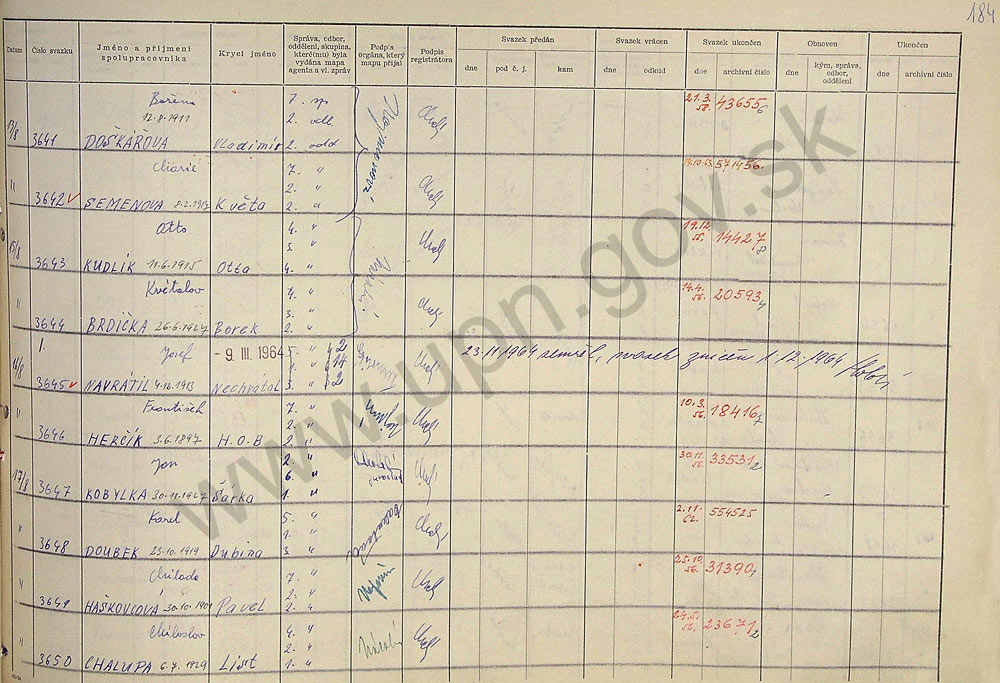 184
Datum
Číslo svazku
Jméno a příjmení
spolupracovníka
Krycí jméno
Správa, odbor,
oddělení, skupina,
které(mu) byla
vydána mapa
agenta a vl. zpráv
Podpis
orgána, který
mapu přijal
Podpis
registrátora
Svazek předán
dne
pod č. j.
kam
Svazek vrácen
dne
odkud
Svazek ukončen
dne
archivní číslo
Obnoven
dne
kým, správa,
odbor,
oddělení
Ukončen
dne
archivní číslo
Božena
12.8.1911
7. sp
2. odb
21.3.
58. 43655
3641 DOŠKÁŘOVA Vladimír 2. odd
Marie
7. "
2. "
571456
3642 SEMENOVA 8.2.1917 Květa 2. "
Otto
4. "
3. "
19.12.
55. 14427
8
15/8 3643 KUDLÍK 11.6.1915 Otta 4. "
Květoslav
7. "
3. "
14.4.
56. 20593
" 3644 BRDIČKA 26.6.1927 Borek 2. "
Josef
- 9. III. 1964
23.11.1964 zemřel, svazek zničen 1.12.1964
16/8 3645 NAVRÁTIL 4.12.1913 Nechvatal 3. "
František
7. "
2. "
10.3.
56. 18416
7
" 3646 HERČÍK 3.6.1897 H.O.B 2. "
Jan
2. "
6. "
30.11.
56. 33531
2
17/8 3647 KOBYLKA 30.11.1927 Šárka 1. "
Karel
5. "
1. "
2.11.
62. 554525
" 3648 DOUBEK 23.10.1919 Dubina 3 "
Milada
7. "
2. "
25.10.
56. 31390
" 3649 HAŠKOVCOVÁ Pavel 2. "
Miloslav
4. "
2. "
24.5.
56. 23671
2
" 3650 CHALUPA 6.7.1929 List 1. "
www.upn.gov.sk